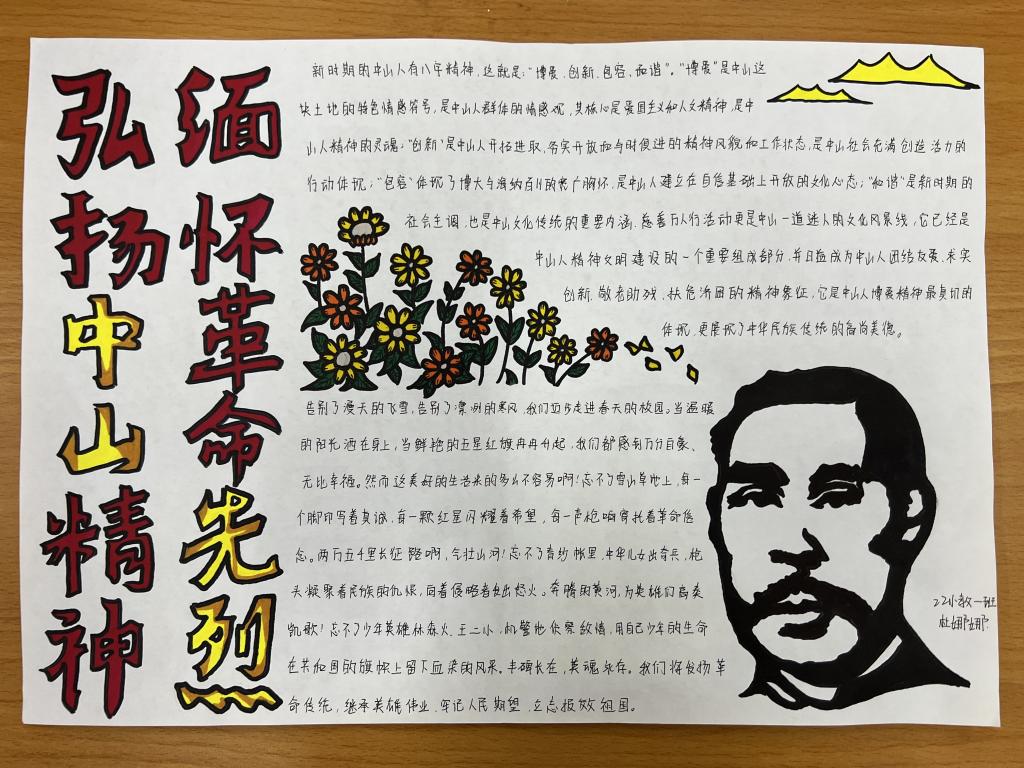 缅怀革命先烈
弘扬中山精神
新时期的中山人有八年精神，这就是："博爱、创新、包容、和谐"。"博爱"是中山这
块土地的特色情感符号，是中山人群体的情感观，其核心是爱国主义和人文精神，是中
山人精神的灵魂；"创新"是中山人开拓进取、务实开放和与时俱进的精神风貌和工作状态，是中山社会充满创造活力的
行动体现；"包容"体现了博大与海纳百川的宽广胸怀，是中山人建立在自信基础上开放的文化心态；"和谐"是新时期的
社会主调，也是中山文化传统的重要内涵。慈善万人行活动更是中山一道迷人的文化风景线，它已经是
中山人精神文明建设的一个重要组成部分，并日益成为中山人团结友爱、求实
创新、敬老助残、扶危济困的精神象征，它是中山人博爱精神最真切的
体现，更展现了中华民族传统的高尚美德。
告别了漫天的飞雪，告别了凛冽的寒风，我们迈步走进春天的校园。当温暖
的阳光洒在身上，当鲜艳的五星红旗冉冉升起，我们都感到万分自豪、
无比幸福。然而这美好的生活来的多么不容易啊！忘不了雪山草地上，每一
个脚印写着真诚，每一颗红星闪耀着希望，每一声枪响寄托着革命信
念。两万五千里长征路啊，气壮山河！忘不了青纱帐里，中华儿女出奇兵，枪
头凝聚着民族的仇恨，向着侵略者射出怒火。奔腾的黄河，为英雄们高奏
凯歌！忘不了少年英雄林森火、王二小，机警地侦察敌情，用自己少年的生命
在共和国的旗帜上留下血染的风采。丰碑长在，英魂永存。我们将发扬革
命传统，继承英雄伟业，牢记人民期望，立志报效祖国。
22小教一班
杜娜娜